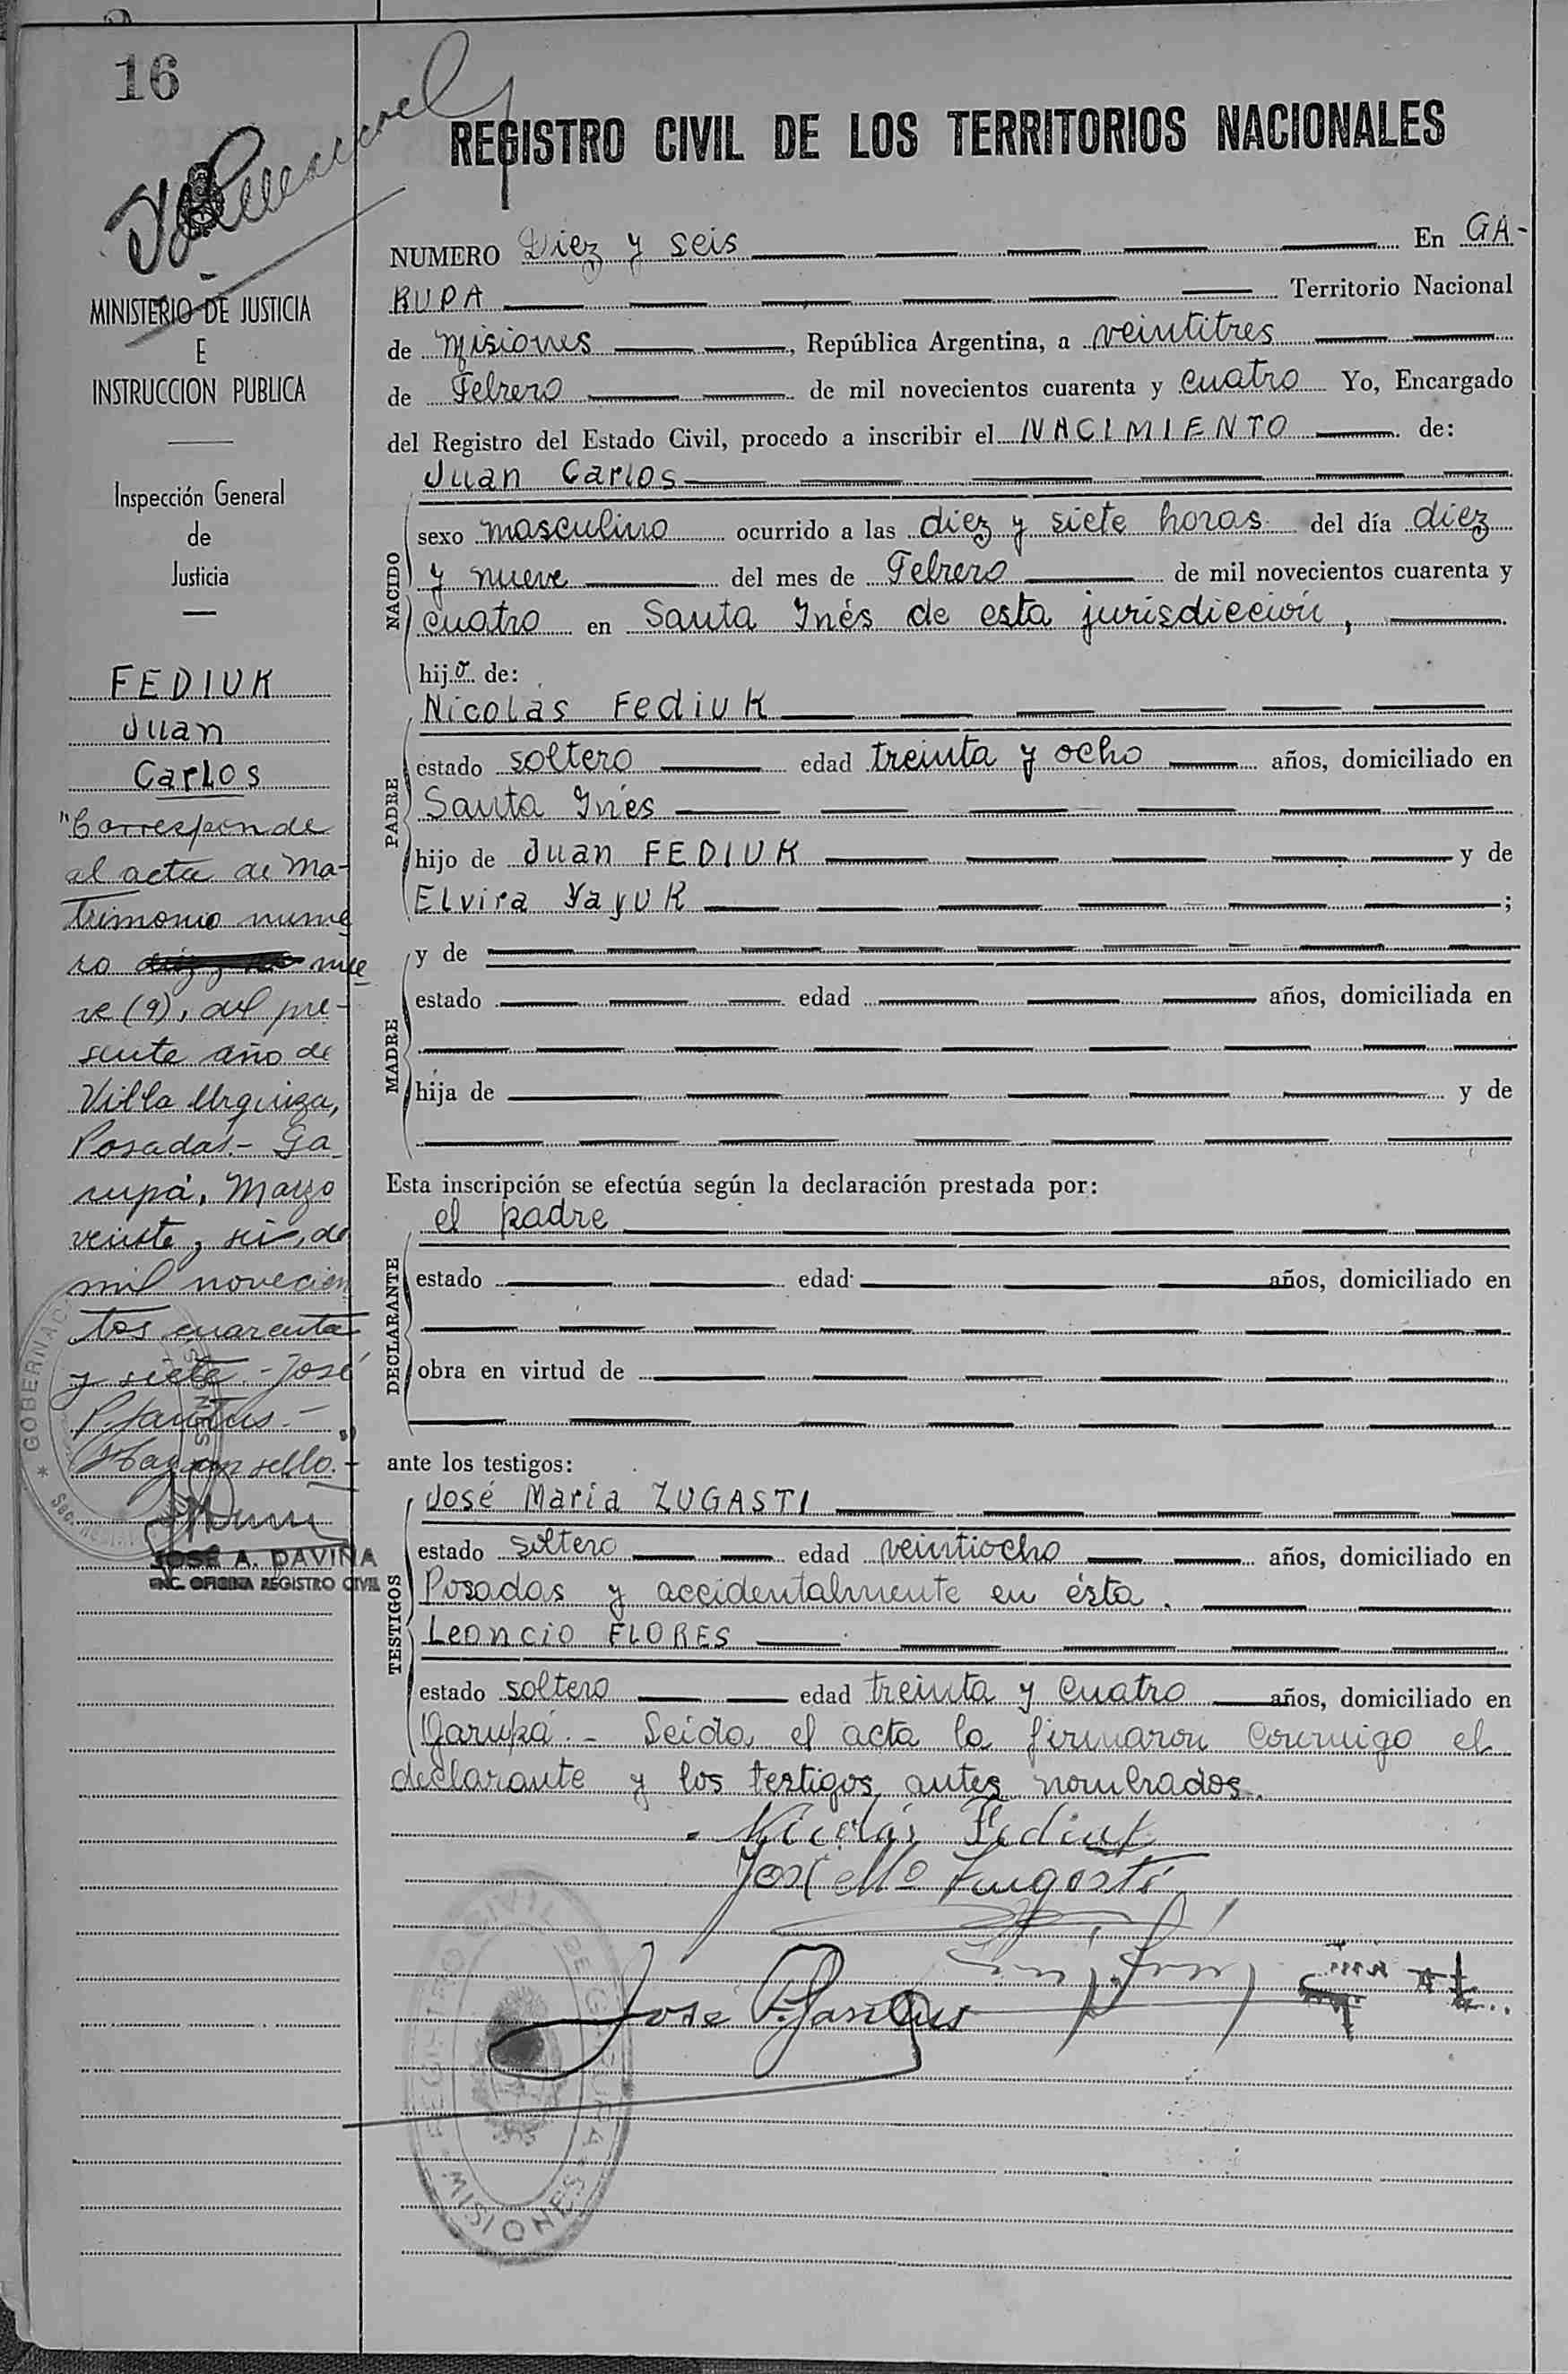 16
REGISTRO CIVIL DE LOS TERRITORIOS NACIONALES
MINISTERIO DE JUSTICIA
E
INSTRUCCION PUBLICA
Inspección General
de
Justicia
FEDIUK
Juan
Carlos
"Corresponde
al acta de Ma-
trimonio nume
ro nue
ve (9), del pre-
sente año de
Villa Urquiza,
Posadas.- Ga
rupá, Marzo
veinte y seis, de
mil novecien
tos cuarenta
y siete.- José
P. Santus.-
Hay un sello.-"
JOSÉ A. DAVIÑA
ENC. OFICINA REGISTRO CIVIL
NUMERO Diez y seis En GA-
RUPA Territorio Nacional
de Misiones, República Argentina, a veintitres
de Febrero de mil novecientos cuarenta y cuatro Yo, Encargado
del Registro del Estado Civil, procedo a inscribir el NACIMIENTO de:
Juan Carlos
NACIDO
sexo masculino ocurrido a las diez y siete horas del día diez
y nueve del mes de Febrero de mil novecientos cuarenta y
cuatro en Santa Inés de esta jurisdicción,
hijo de:
Nicolás Fediuk
PADRE
estado soltero edad treinta y ocho años, domiciliado en
Santa Inés
hijo de Juan FEDIUK y de
Elvira Yayuk ;
MADRE
y de
estado edad años, domiciliada en
hija de y de
Esta inscripción se efectúa según la declaración prestada por:
el padre
DECLARANTE
estado edad años, domiciliado en
obra en virtud de
ante los testigos:
TESTIGOS
José María ZUGASTI
estado soltero edad veintiocho años, domiciliado en
Posadas y accidentalmente en ésta.
Leoncio FLORES
estado soltero edad treinta y cuatro años, domiciliado en
Garupá.- Leida el acta la firmaron conmigo el
declarante y los testigos antes nombrados.
Nicolás Fediuk
José Mª Zugasti
José P. Santus
REGISTRO CIVIL DE GARUPA - MISIONES